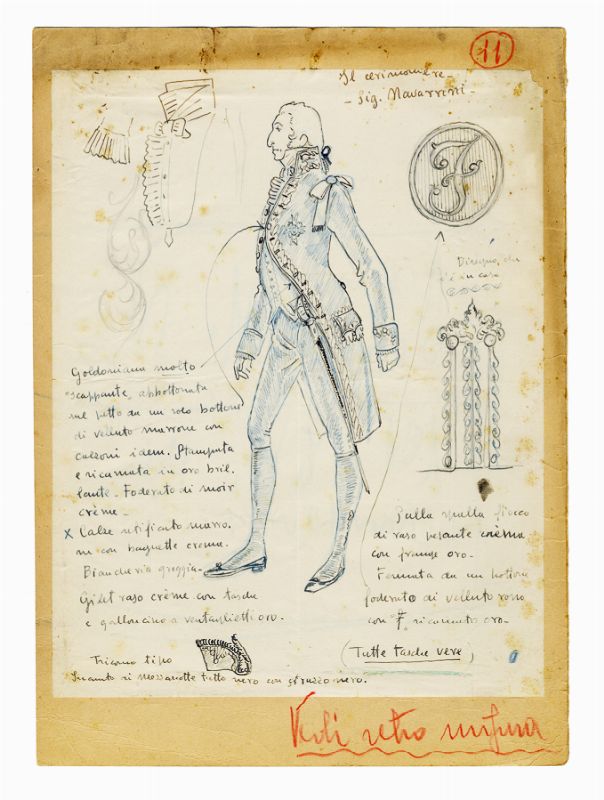 11
Il cerimoniere -
- Sig. Navarrini.
F
Disegno da
in casa
Goldoniana molto
"scappante" abbottonata
sul petto da un solo bottone
di velluto marrone con
calzoni idem. Stampata
e ricamata in oro bril.
lante - Foderato di moir
crème -
X Calze retificato marro.
ni con baguette crema.
Biancheria greggia -
Gilet raso crème con tasche
e galloncino a ventaglietti oro.
Tricorno tipo
Incanto di Mezzanotte tutto nero con struzzo nero.
Sulla spalla fiocco
di raso pesante crème
con frange oro -
Fermata da un bottone
foderato di velluto rosso
con F. ricamato oro -
(Tutte tasche vere)
Vedi retro misura